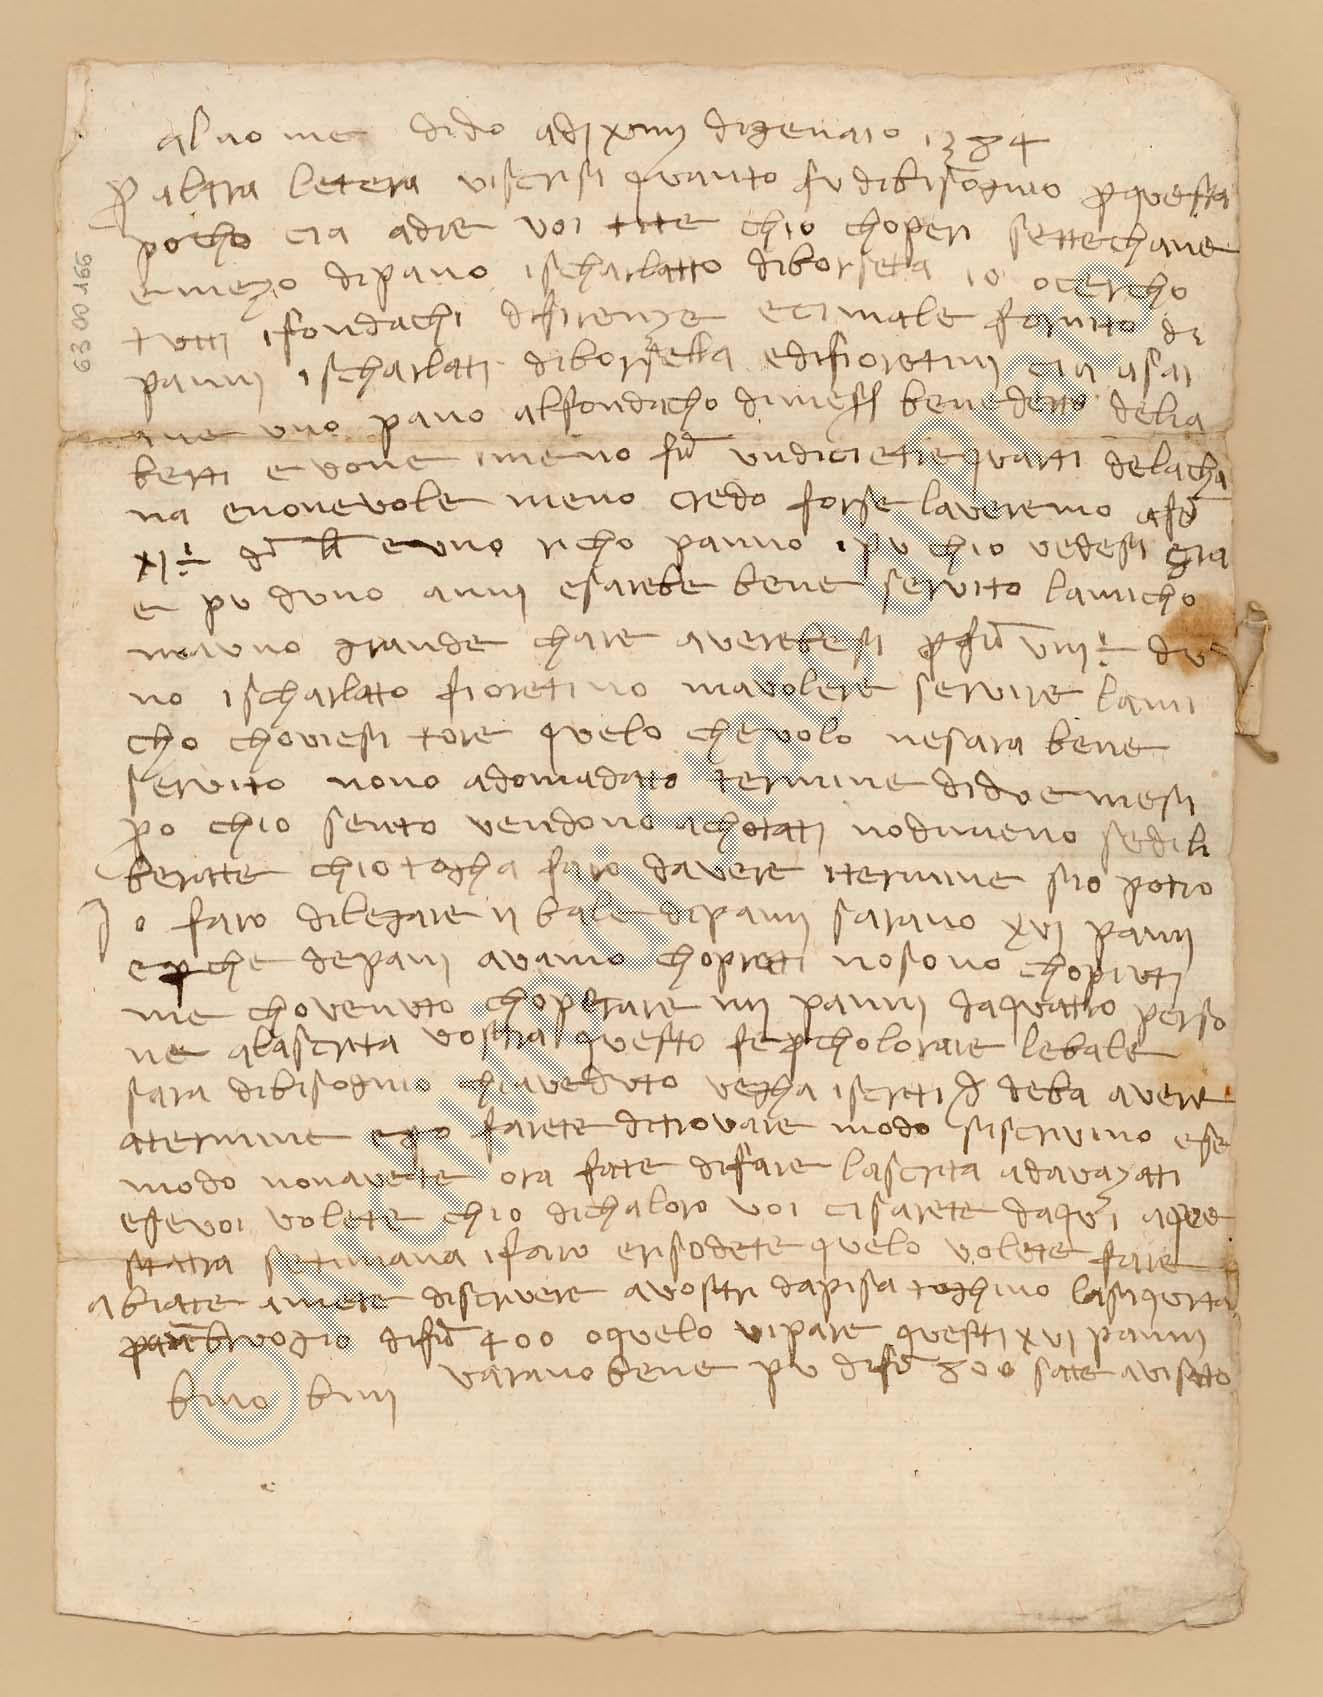 al nome dido adi xviiij digenaio 1384
p altra letera viscrisi quanto fu dibisognio p questa
pocho cia adire voi dite chio choperi settechane
emezo dipano ischarlatto diborsella io ocercho
tutti ifondachi difirenze ecimale fornito di
panni ischarlati diborsella edifioretini cia asai
ane uno pano alfondacho dimess benedetto delia
berti evone imeno fu undici etre quarti delacha
na enonevole meno credo forse laveremo a fu
xj ÷ di b euno richo panno ipu chio vedesi gia
e pu duno anni esarebe bene servito lamicho
mauno grande chare averebesi p fu viiij ÷ du
no ischarlato fioretino mavolere servire lami
cho choviesi tore quelo chevolo nesara bene
servito nono adomadato termine didue mesi
po chio sento vendono achotati nodimeno sedili
berate chio togha faro davere itermine sio potro
io faro dilegare ij bale dipanni sarano xvj panni
epche depani avamo choprati nosono chopiuti
me chovenuto choperare iiij panni daquatro perso
ne alascrita vostra questo fe pcholorare lebale
sara dibisognio chiaveduto vegha iscreti deba avere
atermine epo farete ditrovare modo siscrivino ese
modo nonavete ora fate difare lascrita adavazati
esevoi volete chio dichaloro voi cisarete daqui aque
staltra setimana ifaro erisodete quelo volete fare
abiate amete discrivere avostri dapisa toghino lasiqurta
panbruogio difu 400 oquelo vipare questi xvi panni
varano bene pu difu 800 sate avisato